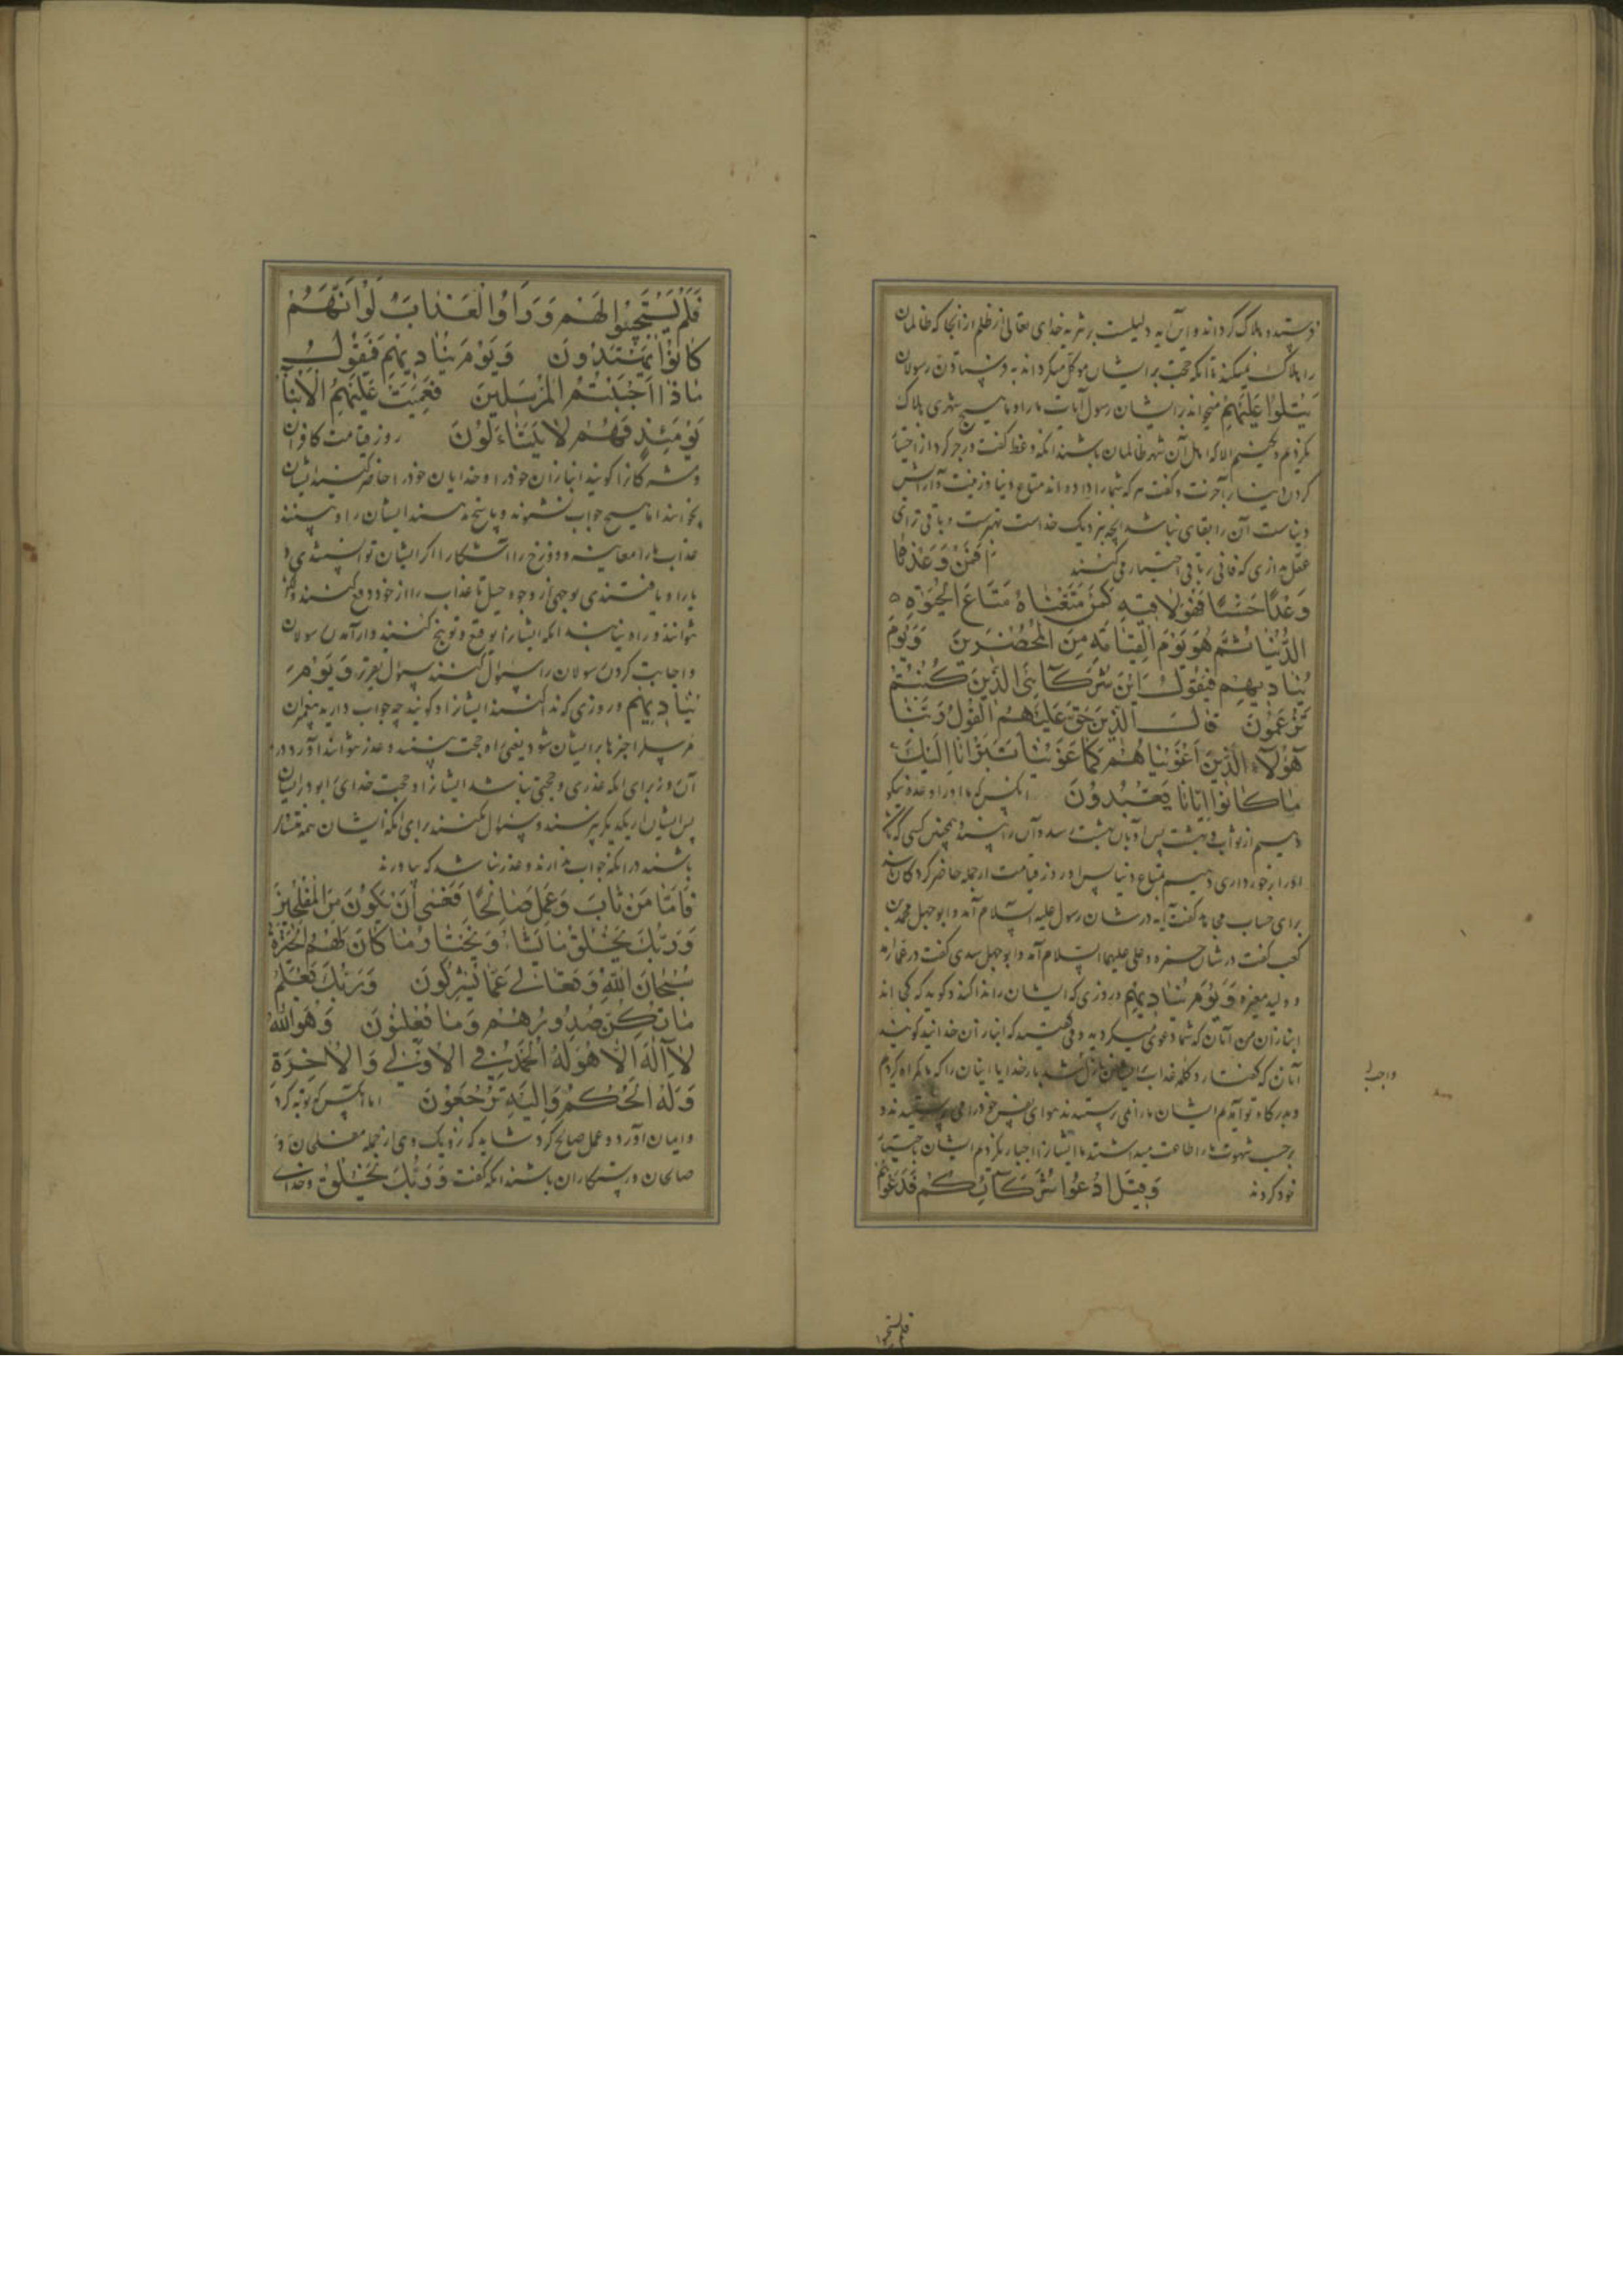 و این آیه دلیلست بر تنزیه خدای تعالی از ظلم از آنجا که ظالمان
را هلاک نمیکند تا آنکه حجت بر ایشان موکل میگرداند به فرستادن رسولان
يَتْلُوا عَلَيْهِمْ میخواند بر ایشان رسول آیات ما را و ما هیچ شهری هلاک
نکردیم الا که اهل آن شهر ظالمان باشند آنکه وعظ گفت و زجر کرد از اختیار
کردن دنیا بر آخرت و گفت هر که شما را داده‌اند متاع دنیا و زینت و آرایش
دنیاست آن را بقای نباشد آنچه بنزدیک خداست بهترست و باقی‌تر ای
عقل ندارى که فانی بر باقی اختیار می‌کنند اَفَمَنْ وَعَدْنَاهُ
وَعْدًا حَسَنًا فَهُوَ لَاقِيهِ كَمَنْ مَتَّعْنَاهُ مَتَاعَ الْحَيٰوةِ
الدُّنْيَا ثُمَّ هُوَ يَوْمَ الْقِيَامَةِ مِنَ الْمُحْضَرِينَ وَيَوْمَ
يُنَادِيهِمْ فَيَقُولُ اَيْنَ شُرَكَآئِىَ الَّذِينَ كُنْتُمْ
تَزْعُمُونَ قَالَ الَّذِينَ حَقَّ عَلَيْهِمُ الْقَوْلُ رَبَّنَا
هٰؤُلَآءِ الَّذِينَ اَغْوَيْنَا هُمْ كَمَا غَوَيْنَا تَبَرَّأْنَا اِلَيْكَ
مَا كَانُوا اِيَّانَا يَعْبُدُونَ آنکس که ما او را وعده نیکو
دهیم از ثواب و بهشت پس او بآن بهشت رسد و آن را بیند همچنان کسی که
او را برخورداری دهیم بمتاع دنیا پس او روز قیامت از جمله حاضر کردگان
برای حساب مجاهد گفت آیه در شان رسول علیه السلام آمد و ابوجهل محمد بن
کعب گفت در شان حمزه و علی علیهما السلام آمد و ابوجهل سدی گفت در عمار آمد
و ولید مغیره وَيَوْمَ يُنَادِيهِمْ و روزی که ایشان را ندا کند و گوید که کجا‌اند
انبازان من آنان که شما دعوی میکردید و می‌گفتید که انبازان خدااند گویند
آنان که گفتار و کلمه عذاب بایشان نازل شد بار خدایا اینان را که ما گمراه کردیم
و بدرگاه تو آمدیم ایشان ما را نمی‌پرستیدند هوای نفس خود را می پرستیدند و
برحسب شهوت ما را طاعت میداشتند ما ایشان را اجبار نکردیم ایشان باختیار
خود کردند وَقِيلَ ادْعُوا شُرَكَآئَكُمْ فَدَعَوْهُمْ
واجب
فلم یستجیبوا
فَلَمْ يَسْتَجِيبُوا لَهُمْ وَرَاَوُا الْعَذَابَ لَوْ اَنَّهُمْ
كَانُوا يَهْتَدُونَ وَيَوْمَ يُنَادِيهِمْ فَيَقُولُ
مَاذَا اَجَبْتُمُ الْمُرْسَلِينَ فَعَمِيَتْ عَلَيْهِمُ الْاَنْبَآءُ
يَوْمَئِذٍ فَهُمْ لَا يَتَسَاءَلُونَ روز قیامت کافران
و مشرکان را گویند انبازان خود را و خدایان خود را حاضر کنید ایشان
بخوانند اما هیچ جواب نشنوند و پاسخ ندهند ایشان را و بینند
عذاب را معاینه و دوزخ را آشکارا اگر ایشان توانستندی
یا راه یافتندی بوجهی از وجوه حیل تا عذاب را از خود دفع کنند
نتوانند و راه نیابند آنکه ایشان را توقیع و توبیخ کنند و از آمدن رسولان
و اجابت کردن رسولان را سئوال کنند سئوال تقریر وَيَوْمَ
يُنَادِيهِمْ و روزی که ندا کنند ایشان را و گویند چه جواب دارید پیغمبران
مرسل را خبرها بر ایشان شود یعنی راه حجت نبینند و عذر نتوانند آورد در
آن روز برای آنکه عذری و حجتی نباشد ایشان را و حجت خدای را بود بر ایشان
پس ایشان از یکدیگر نپرسند و سئوال نکنند برای آنکه ایشان همه متساوی
باشند در آنکه جواب ندارند و عذر نباشد که بیاورند
فَاَمَّا مَنْ تَابَ وَعَمِلَ صَالِحًا فَعَسٰى اَنْ يَكُونَ مِنَ الْمُفْلِحِينَ
وَرَبُّكَ يَخْلُقُ مَا يَشَاءُ وَيَخْتَارُ مَا كَانَ لَهُمُ الْخِيَرَةُ
سُبْحَانَ اللّٰهِ وَتَعَالٰى عَمَّا يُشْرِكُونَ وَرَبُّكَ يَعْلَمُ
مَا تُكِنُّ صُدُورُهُمْ وَمَا يُعْلِنُونَ وَهُوَ اللّٰهُ
لَا اِلٰهَ اِلَّا هُوَ لَهُ الْحَمْدُ فِى الْاُولٰى وَالْاٰخِرَةِ
وَلَهُ الْحُكْمُ وَاِلَيْهِ تُرْجَعُونَ اما آنکس که توبه کرد
و ایمان آورد و عمل صالح کرد شاید که نزدیک وی از جمله مفلحان و
صالحان و رستگاران باشند آنکه گفت وَرَبُّكَ يَخْلُقُ و خدای